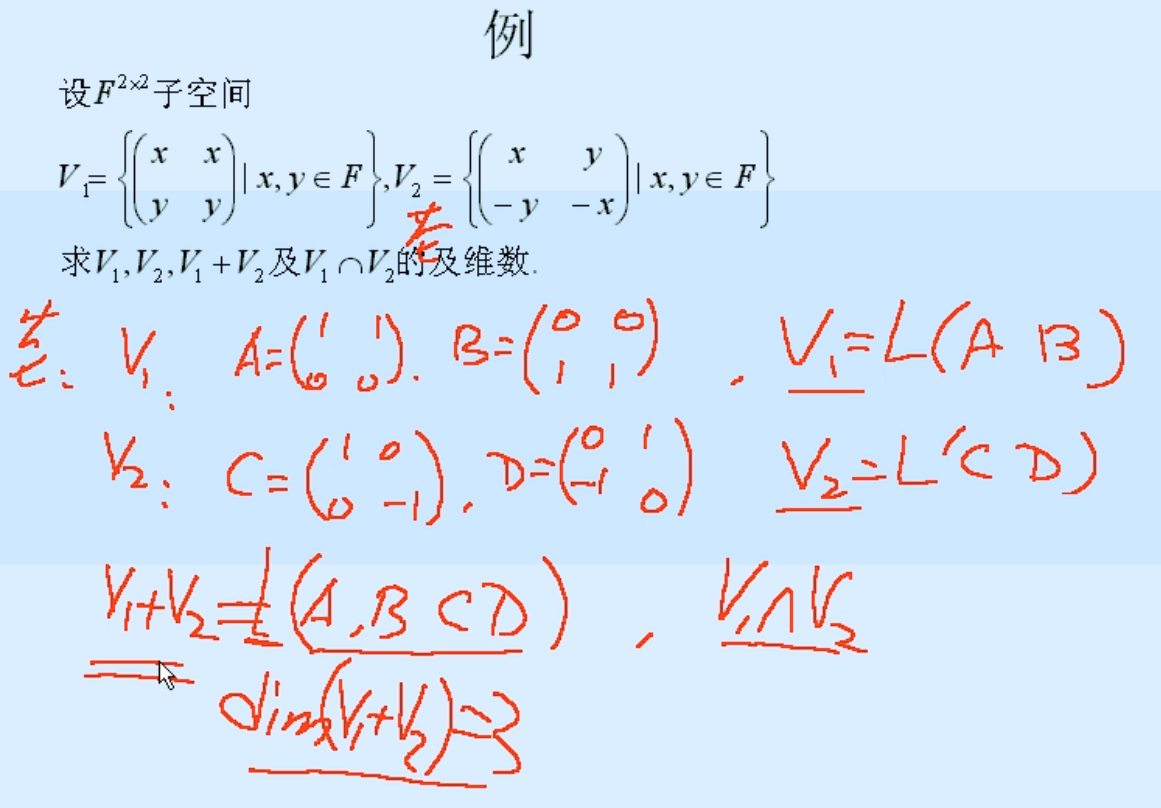 例
设F^{2×2}子空间
V_1={(x x; y y) | x, y ∈ F}, V_2 = {(x y; -y -x) | x, y ∈ F}
求V_1, V_2, V_1 + V_2及V_1 ∩ V_2的及维数.
V_1: A=(1 1; 0 0). B=(0 0; 1 1), V_1=L(A B)
V_2: C=(1 0; 0 -1), D=(0 1; -1 0) V_2=L(C D)
V_1+V_2=L(A,B C D), V_1∩V_2
dim(V_1+V_2)=3